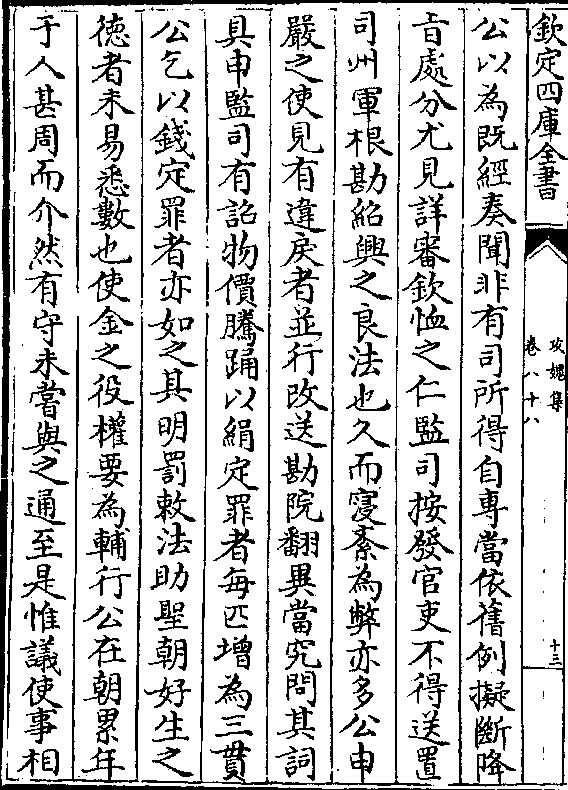 欽定四庫全書
攻媿集
卷八十八
十三
公以為既經奏聞非有司所得自專當依舊例擬斷降
㫖處分尤見詳審欽恤之仁監司按發官吏不得送置
司州軍根勘紹興之良法也久而寖紊為弊亦多公申
嚴之使見有違戾者並行改送勘院翻異當究問其詞
具申監司有詔物價騰踊以絹定罪者每匹增為三貫
公乞以錢定罪者亦如之其明罰敕法助聖朝好生之
徳者未易悉數也使金之役權要為輔行公在朝累年
于人甚周而介然有守未嘗與之通至是惟議使事相